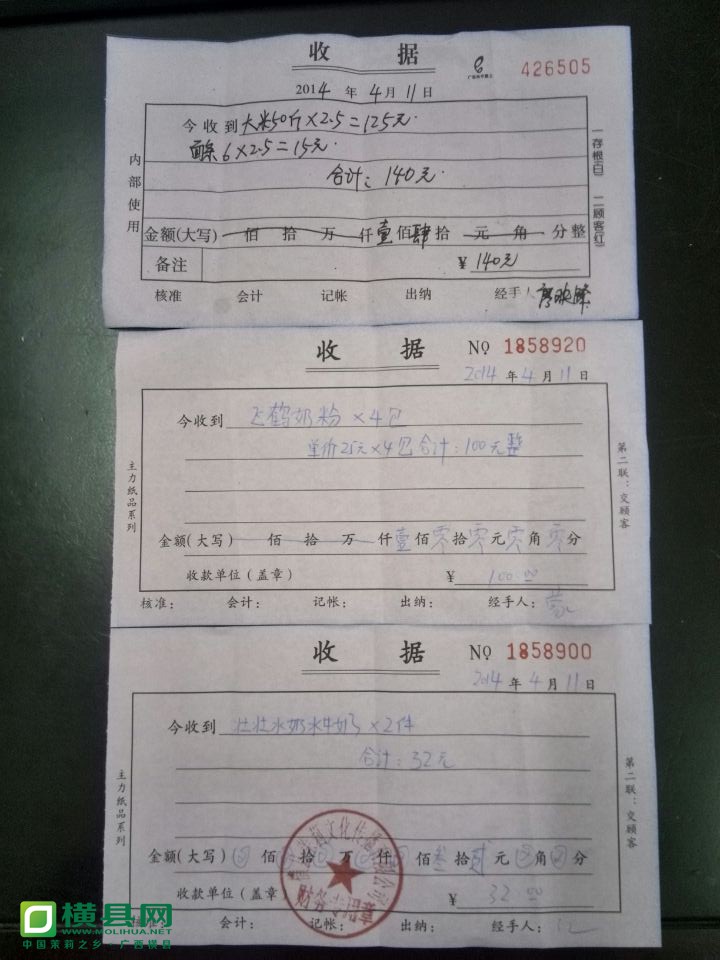 收 据
426505
2014 年 4 月 11 日
今收到 大米50斤×2.5=125元.
面条6×2.5=15元.
合计: 140元.
内部使用
一存根(白) 二顾客(红)
金额(大写) 佰 拾 万 仟 壹 佰 肆 拾 元 角 分 整
备注 ¥ 140元
核准 会计 记帐 出纳 经手人
收 据 № 1858920
2014 年 4 月 11 日
今收到 飞鹤奶粉 ×4包
单价25元×4包 合计: 100元整
主力纸品系列
第二联：交顾客
金额(大写) 佰 拾 万 仟 壹 佰 零 拾 零 元 零 角 零 分
收款单位(盖章) ¥ 100.00
核准： 会计： 记帐： 出纳： 经手人：
收 据 № 1858900
2014 年 4 月 11 日
今收到 壮壮水奶水牛奶 ×2件
合计: 32元
主力纸品系列
第二联：交顾客
金额(大写) 佰 拾 万 仟 佰 叁 拾 贰 元 角 分
收款单位(盖章) ¥ 32.00
核准： 会计： 记帐： 出纳： 经手人：
横县网
WWW.MOLIHUA.NET
中国茉莉之乡·广西横县